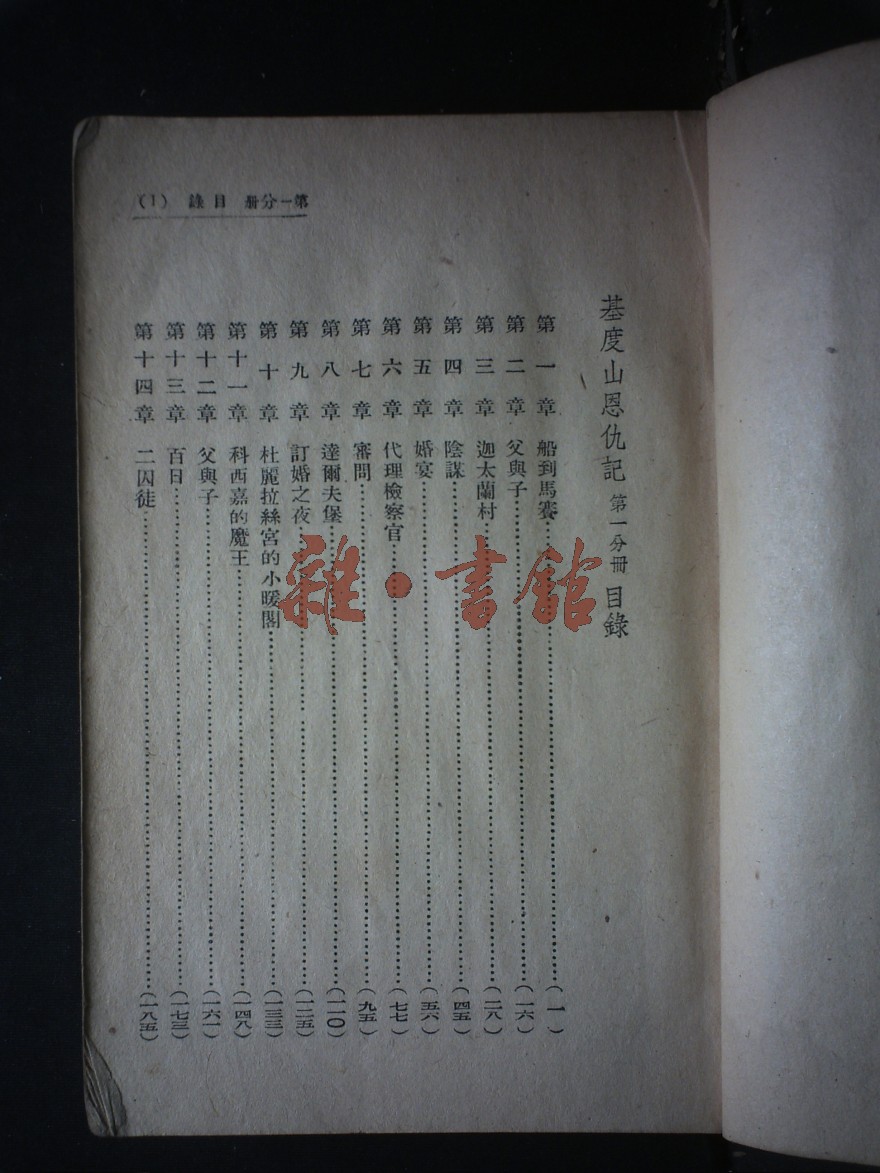 第一分冊 目錄 (1)
基度山恩仇記 第一分冊 目錄
第一章 船到馬賽……(一)
第二章 父與子……(一六)
第三章 迦太蘭村……(二八)
第四章 陰謀……(四五)
第五章 婚宴……(五六)
第六章 代理檢察官……(七七)
第七章 審問……(九五)
第八章 達爾夫堡……(一一〇)
第九章 訂婚之夜……(一二五)
第十章 杜麗拉絲宮的小暖閣……(一三三)
第十一章 科西嘉的魔王……(一四八)
第十二章 父與子……(一六一)
第十三章 百日……(一七三)
第十四章 二囚徒……(一八五)
雜·書館